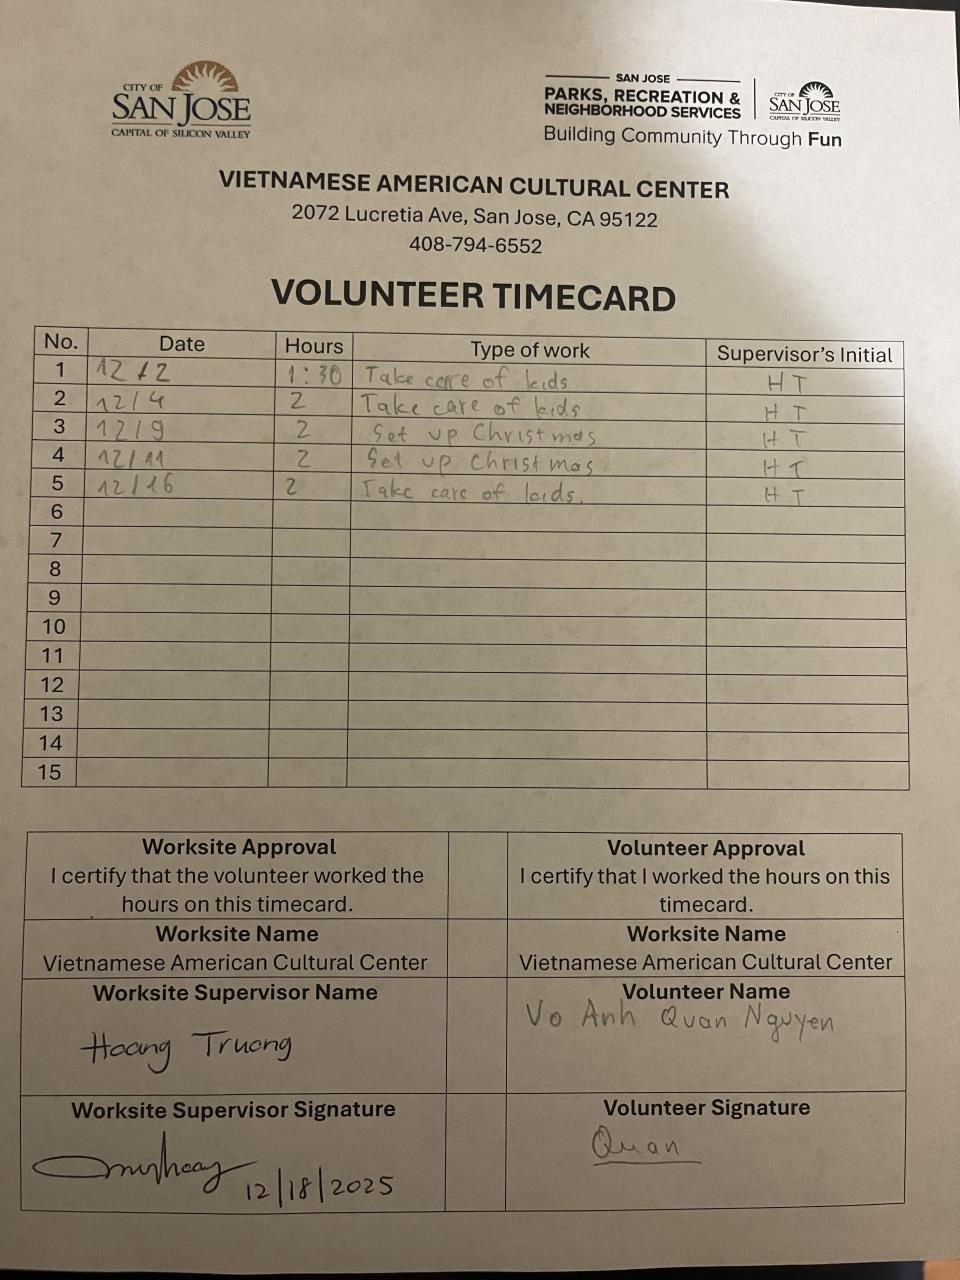 CITY OF
SAN JOSE
CAPITAL OF SILICON VALLEY
SAN JOSE
PARKS, RECREATION &
NEIGHBORHOOD SERVICES
CITY OF
SAN JOSE
CAPITAL OF SILICON VALLEY
Building Community Through Fun
VIETNAMESE AMERICAN CULTURAL CENTER
2072 Lucretia Ave, San Jose, CA 95122
408-794-6552
VOLUNTEER TIMECARD
No. Date Hours Type of work Supervisor's Initial
1 12/2 1:30 Take care of kids H T
2 12/4 2 Take care of kids H T
3 12/9 2 Set up Christmas H T
4 12/11 2 Set up Christmas H T
5 12/16 2 Take care of kids. H T
6
7
8
9
10
11
12
13
14
15
Worksite Approval
I certify that the volunteer worked the
hours on this timecard.
Worksite Name
Vietnamese American Cultural Center
Worksite Supervisor Name
Hoang Truong
Worksite Supervisor Signature
12/18/2025
Volunteer Approval
I certify that I worked the hours on this
timecard.
Worksite Name
Vietnamese American Cultural Center
Volunteer Name
Vo Anh Quan Nguyen
Volunteer Signature
Quan